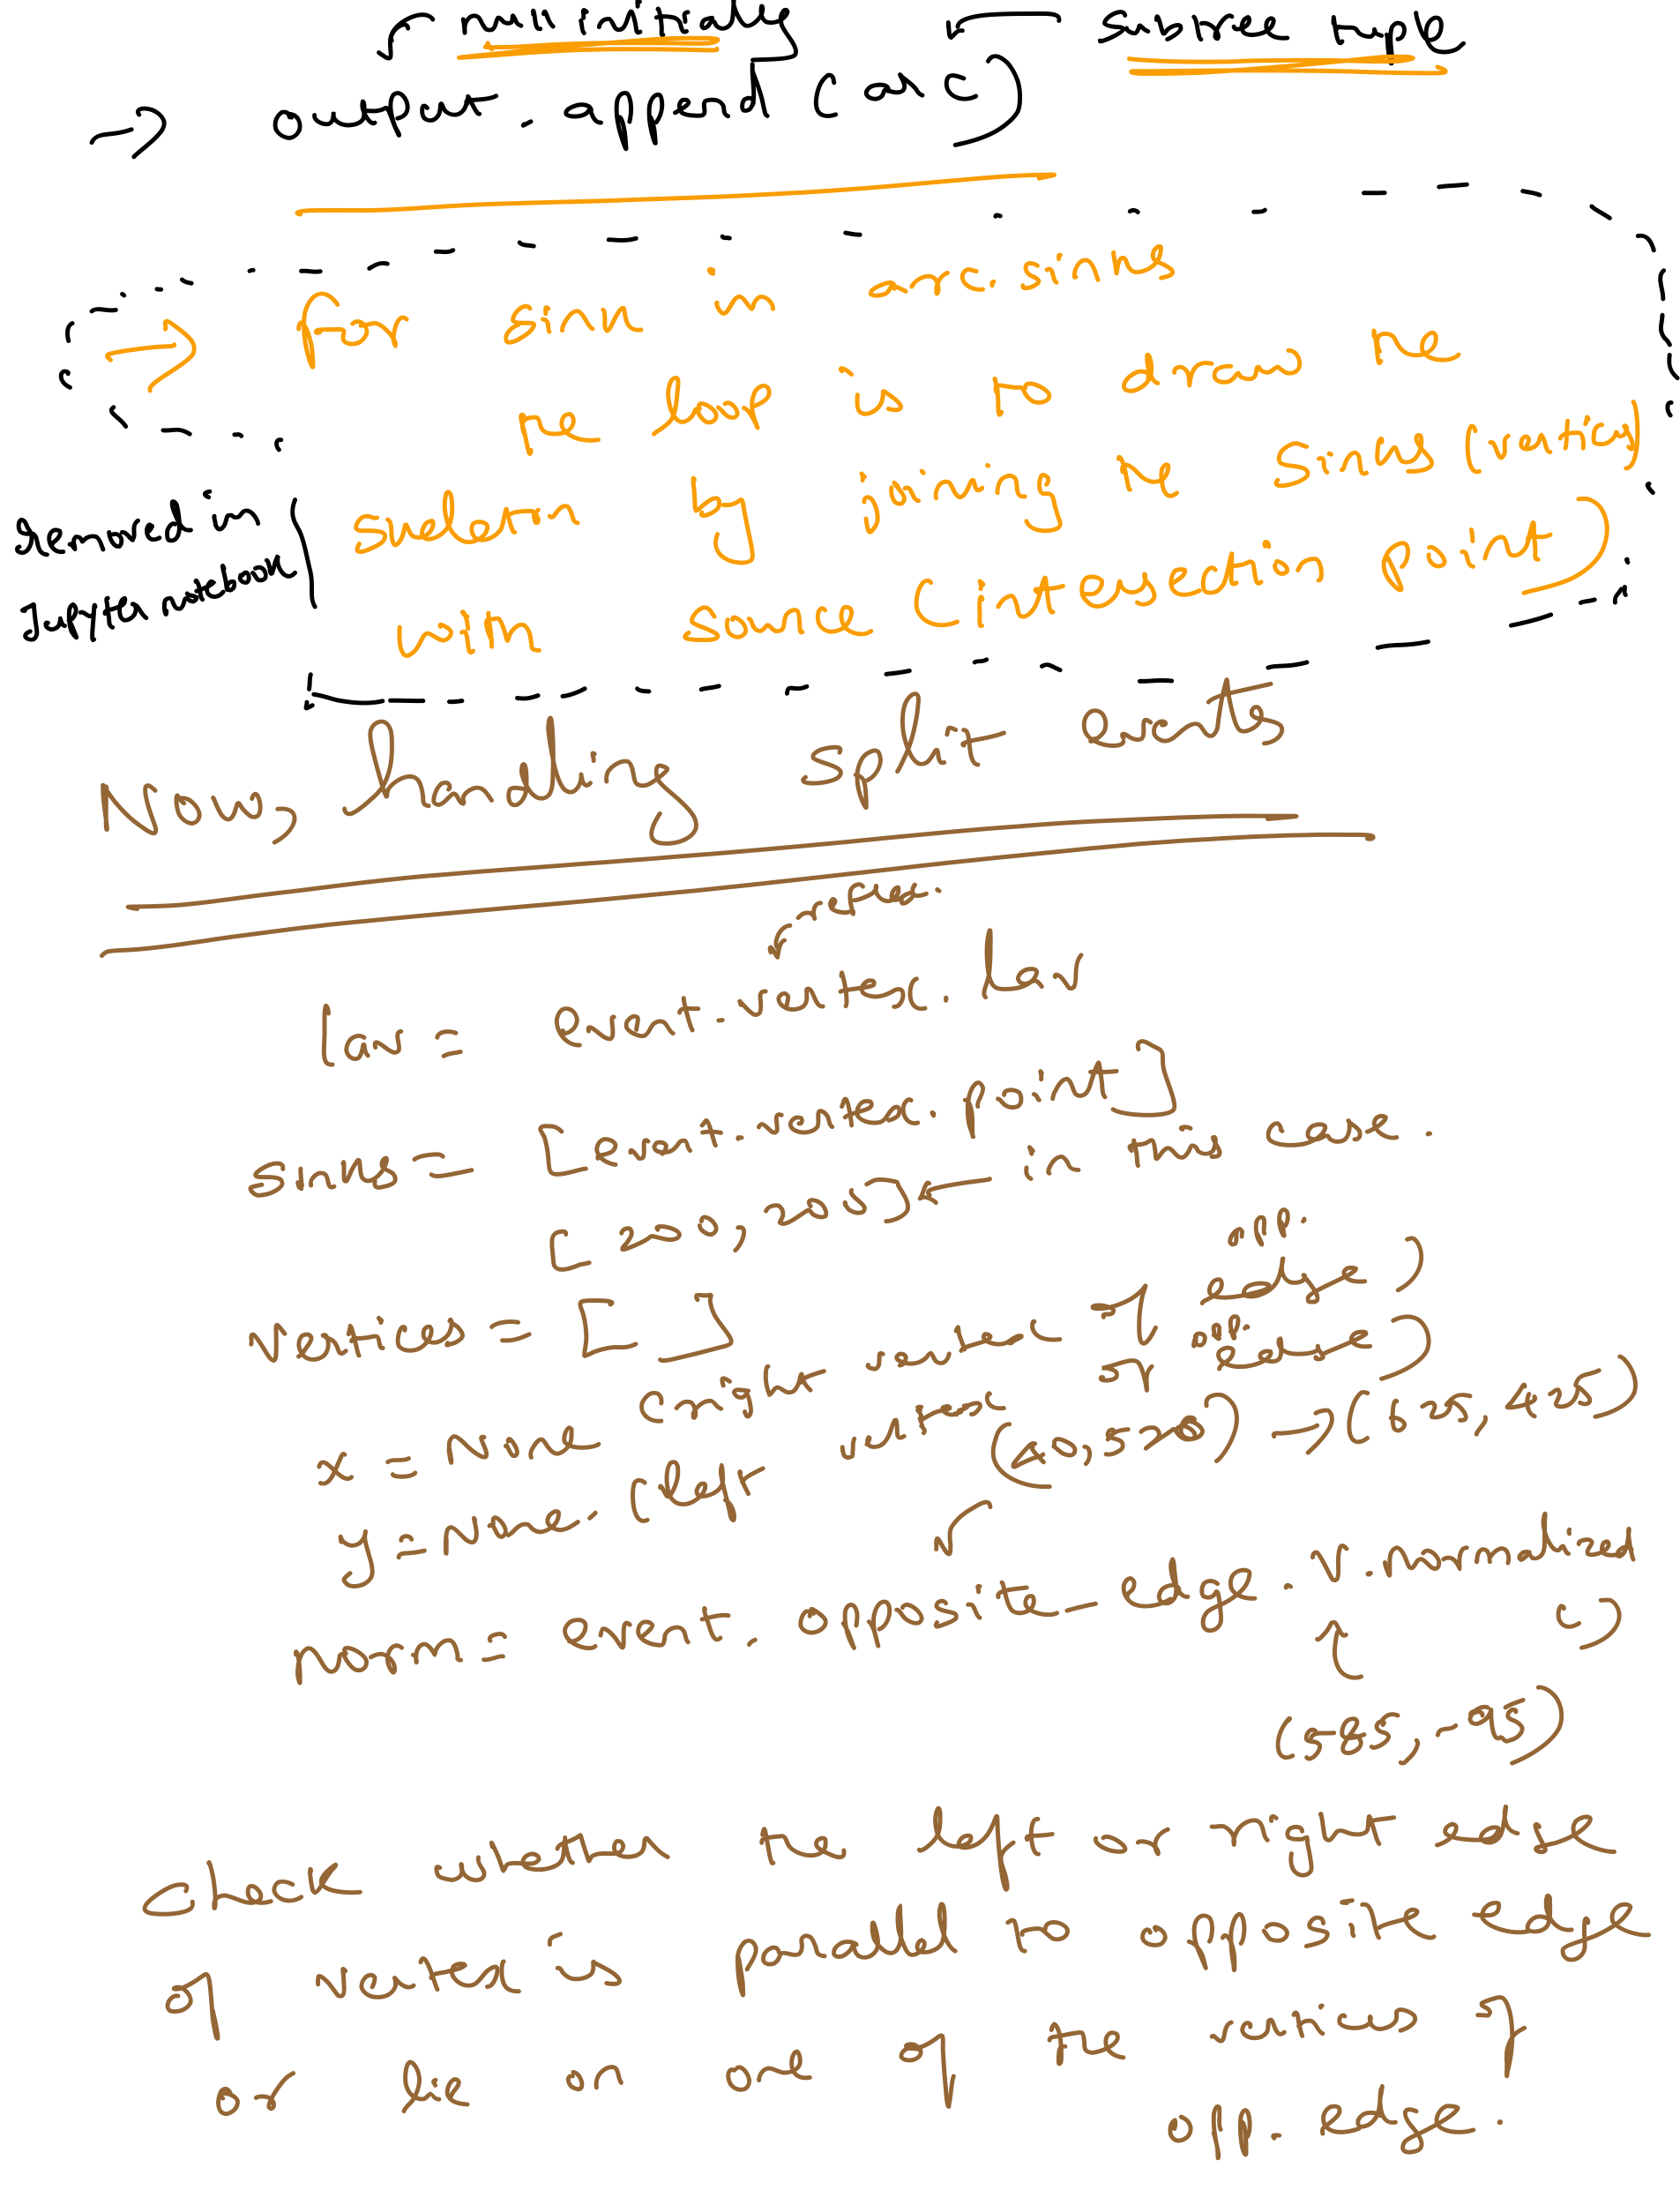 null initially
subtree tuple
→ output.append(arc)
→ for sink in arc.sinks
the loop is to draw the
skeleton by joining the sinks (vertices)
with source (intersection point)
Removed in
Jupyter notebook
Now, handling split events
reflex.
lav = event.vertex.lav
sinks = [event.vertex.point]
[200, 200] ← in this case.
vertices = []
x = None (right vertex of opp. edge)
y = None. (left vertex of opp. edge)
(40, 520) → (625, 425)
norm = event.opposite_edge.v.normalized
()
(585, -95)
Check whether the left or right edge
of vertex is parallel to opposite edge
or lie on one of the vertices of
opp. edge.